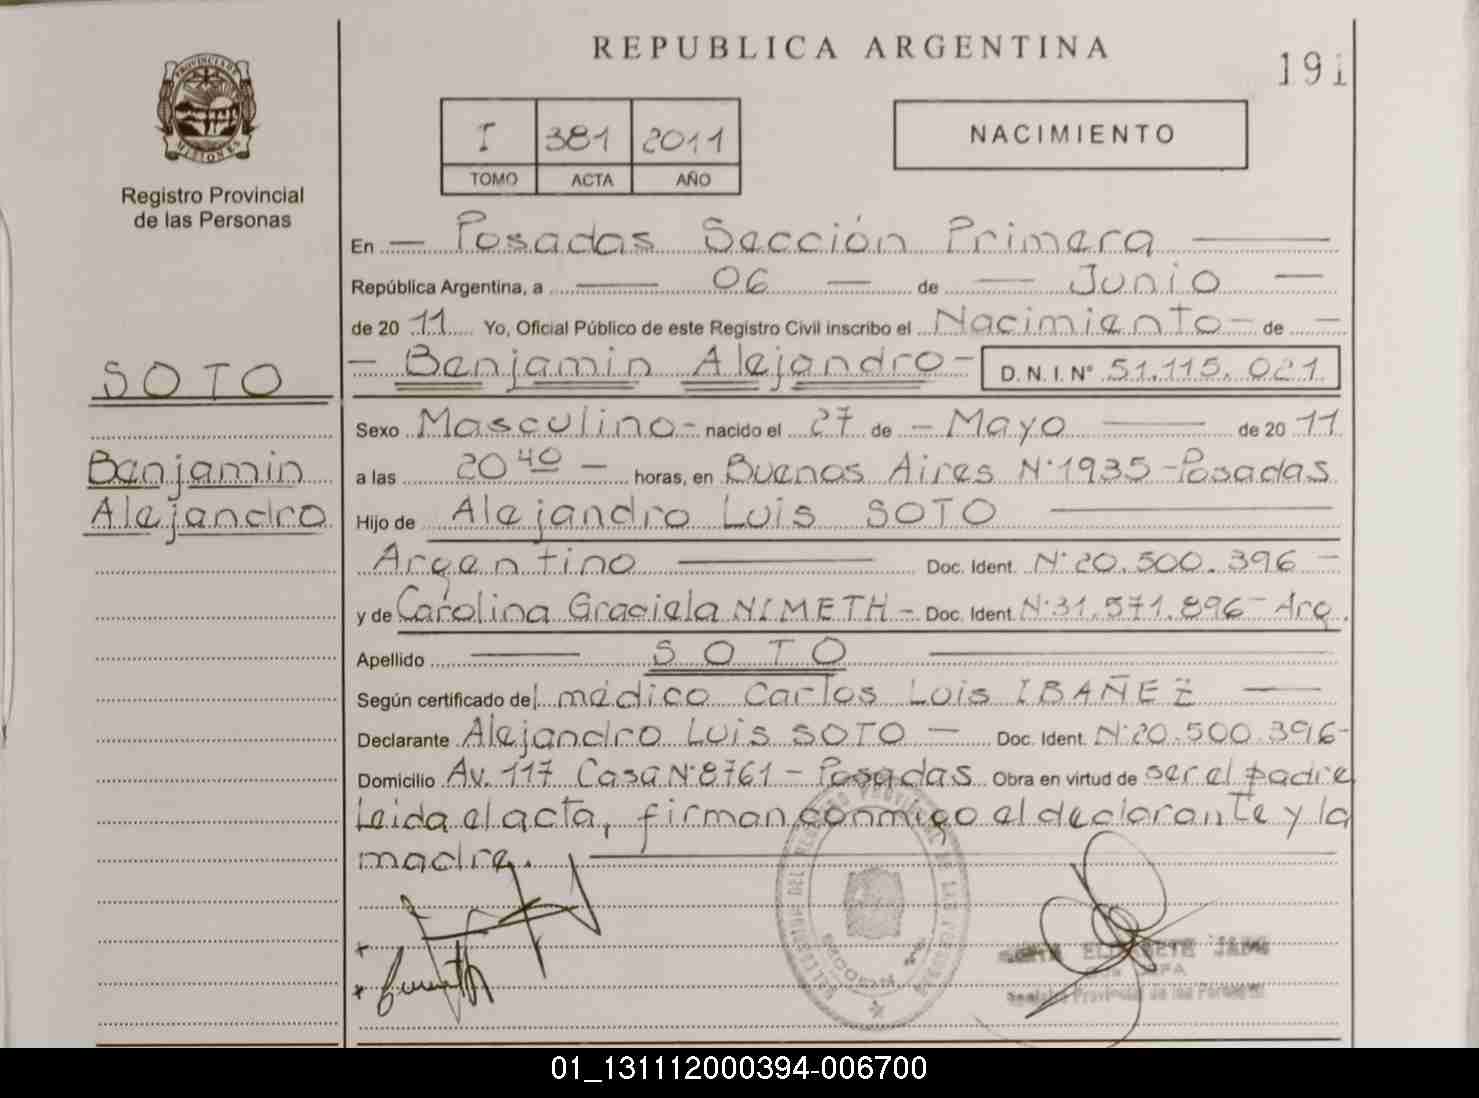 REPUBLICA ARGENTINA
191
PROVINCIA DE MISIONES
Registro Provincial
de las Personas
I 381 2011
TOMO ACTA AÑO
NACIMIENTO
En — Posadas Sección Primera —
República Argentina, a — 06 — de — Junio —
de 20 11 Yo, Oficial Público de este Registro Civil inscribo el Nacimiento — de —
— Benjamin Alejandro — D.N.I. N° 51.115.021
SOTO
Benjamin
Alejandro
Sexo Masculino - nacido el 27 de — Mayo — de 20 11
a las 20 40 — horas, en Buenos Aires N°1935 - Posadas
Hijo de Alejandro Luis SOTO —
Argentino — Doc. Ident. N° 20.500.396 —
y de Carolina Graciela NIMETH - Doc. Ident. N° 31.571.896 - Arg.
Apellido — SOTO —
Según certificado del médico Carlos Luis IBAÑEZ —
Declarante Alejandro Luis SOTO — Doc. Ident. N° 20.500.396 -
Domicilio Av. 117 Casa N° 8761 - Posadas Obra en virtud de ser el padre
Leida el acta, firman conmigo el declarante y la
madre. —
Registro Provincial de las Personas
01_131112000394-006700